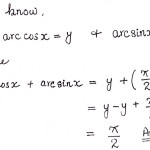 know,
arc cos x = y & arc sin x
cos x + arc sin x = y + (π/2
= y - y + π/2
= π/2